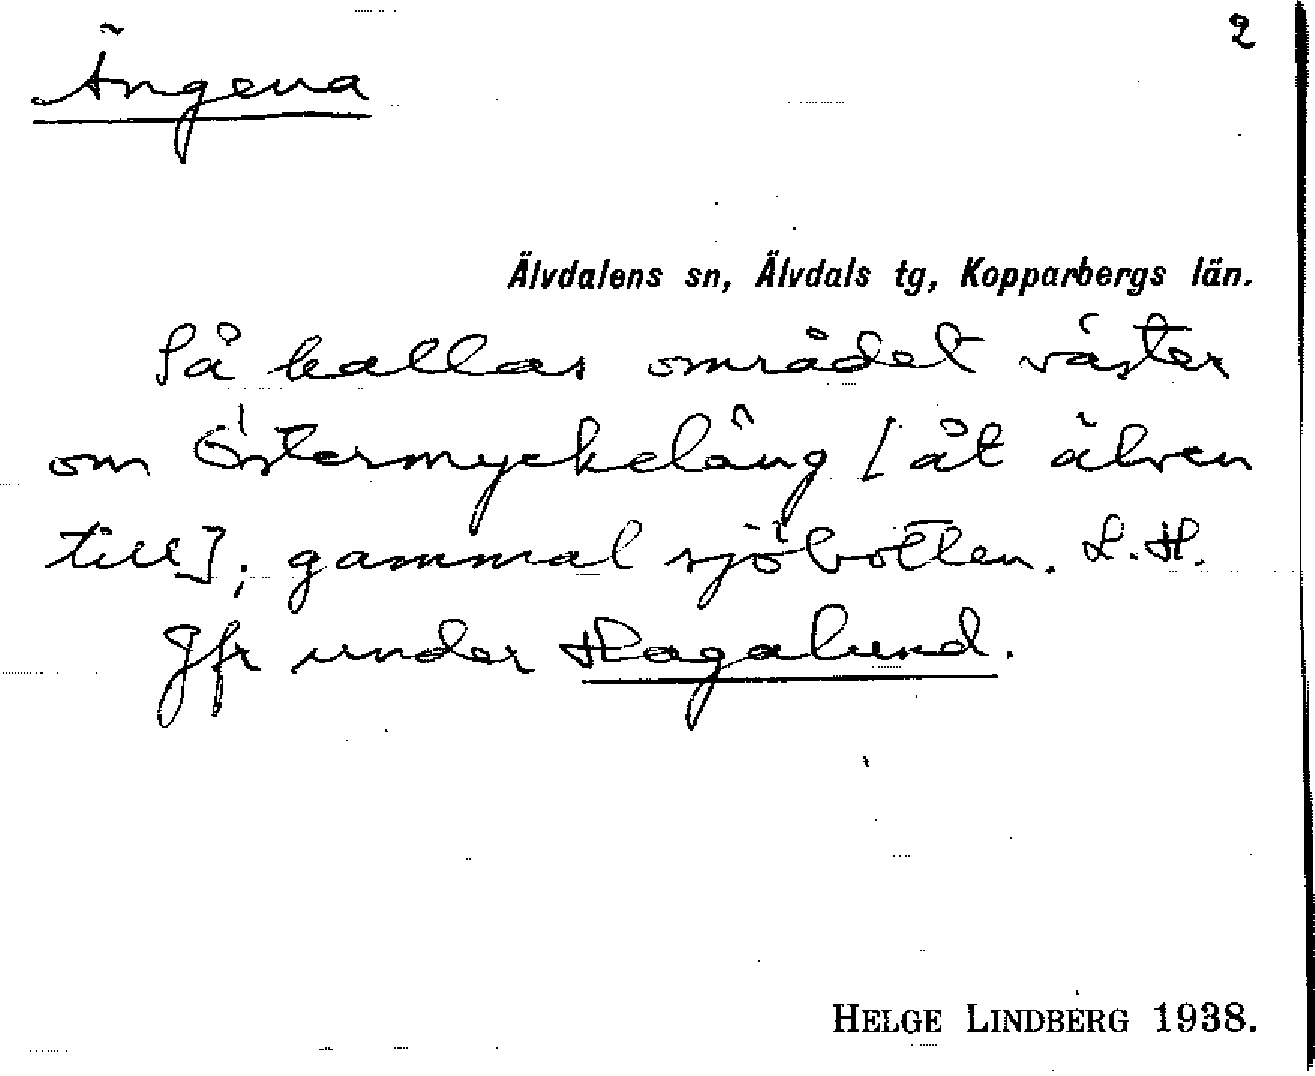 2
Ängena
Älvdalens sn, Älvdals tg, Kopparbergs län.
Så kallas området väster
om Östermyckeläng [åt älven
till]; gammal sjöbotten. L.H.
Jfr under Hagalund.
HELGE LINDBERG 1938.